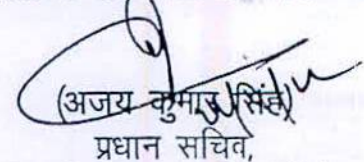 (अजय कुमार सिंह)
प्रधान सचिव,